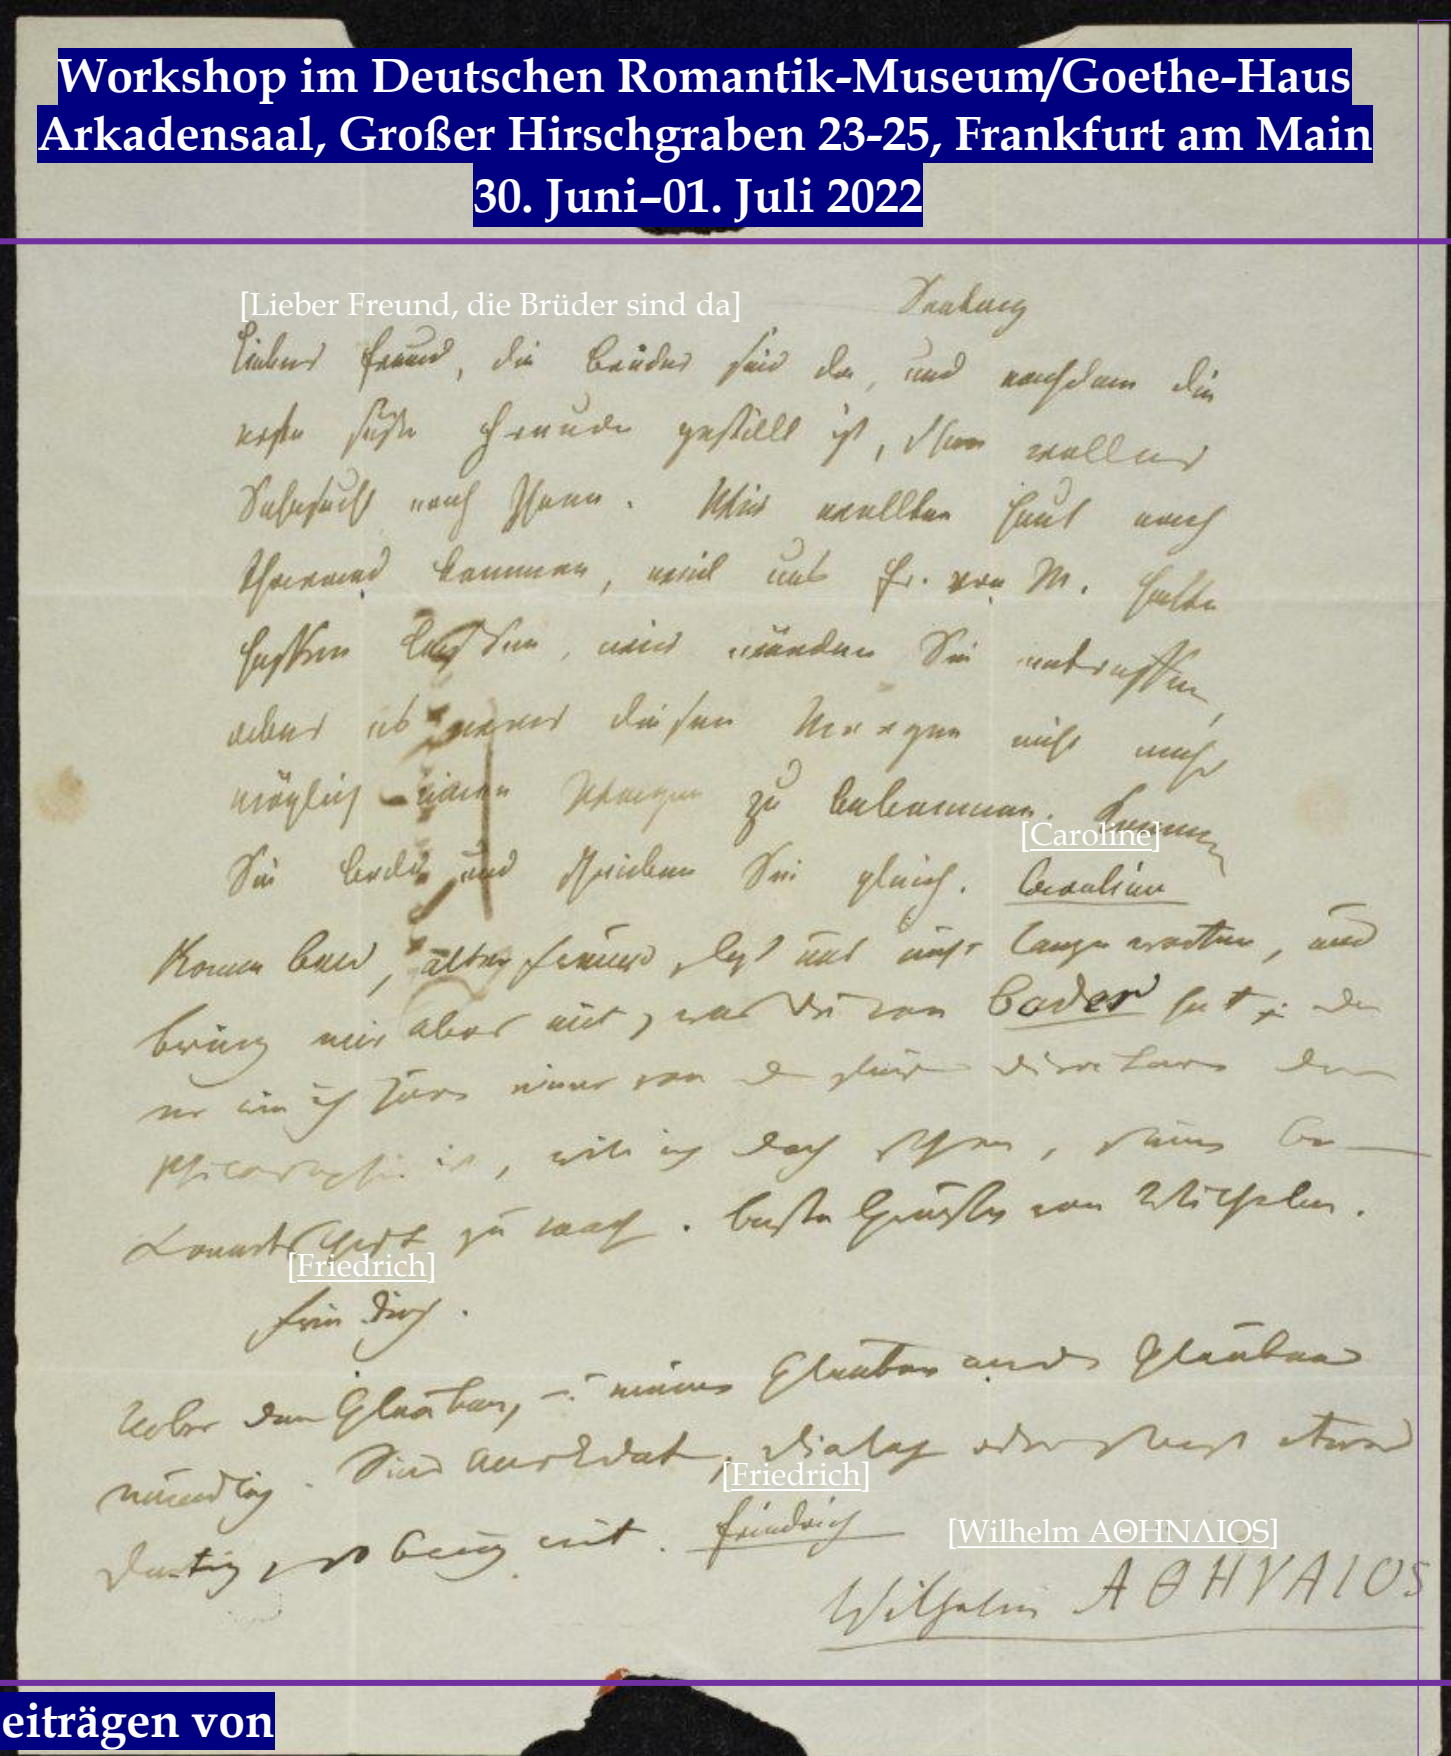 Workshop im Deutschen Romantik-Museum/Goethe-Haus
Arkadensaal, Großer Hirschgraben 23-25, Frankfurt am Main
30. Juni–01. Juli 2022
[Lieber Freund, die Brüder sind da]
Lieber Freund, die Brüder sind da, und nachdem die
erste süße Freude gestillt ist, Sehn
Sehnsucht nach Ihnen. Wir wollten heut nach
kommen, weil uns Fr. von M. hatte
hoffen laßen, wir würden Sie antreffen,
aber es war diesen Morgen nicht mehr
möglich einen Wagen zu bekommen. Kommen
[Caroline]
Sie bald und schreiben Sie gleich. Caroline
Komm bald, alter Freund, laß uns nicht lange warten, und
bring mir aber mit, was Du von Bader hast;
will ich doch sehen, seine Be-
kanntschaft zu mach. Beste Grüße von Wilhelm.
[Friedrich]
Friedrich.
Ueber den Glauben, meinen Glauben
mündlich. Dialog
[Friedrich]
bring mit. Friedrich
[Wilhelm ΑΘΗΝΛΙΟS]
Wilhelm ΑΘΗΝΑΙΟS
eiträgen von